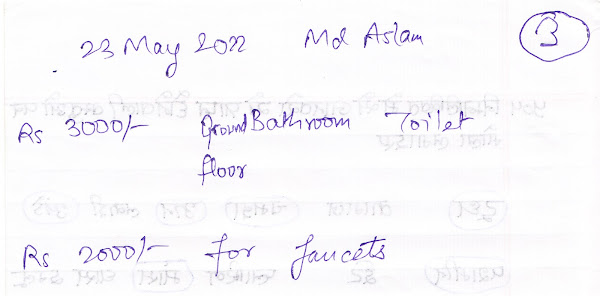 23 May 2022 Md Aslam 3
Rs 3000/- Ground Bathroom Toilet
floor
Rs 2000/- for faucets